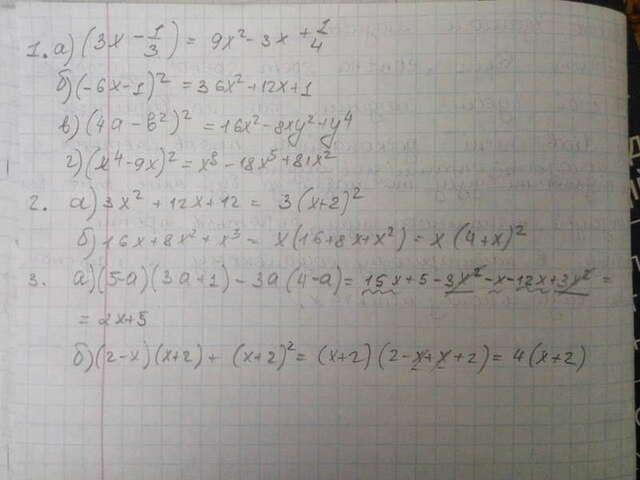 1. а) (3x - 1/3) = 9x² - 3x + 1/4
б) (-6x-1)² = 36x² + 12x + 1
в) (4a - b²)² = 16x² - 8xy² + y⁴
г) (x⁴ - 9x)² = x⁸ - 18x⁵ + 81x²
2. а) 3x² + 12x + 12 = 3(x+2)²
б) 16x + 8x² + x³ = x(16 + 8x + x²) = x(4+x)²
3. а) (5-a)(3a+1) - 3a(4-a) = 15x + 5 - 3x² - x - 12x + 3x² =
= 2x+5
б) (2-x)(x+2) + (x+2)² = (x+2)(2-x+x+2) = 4(x+2)